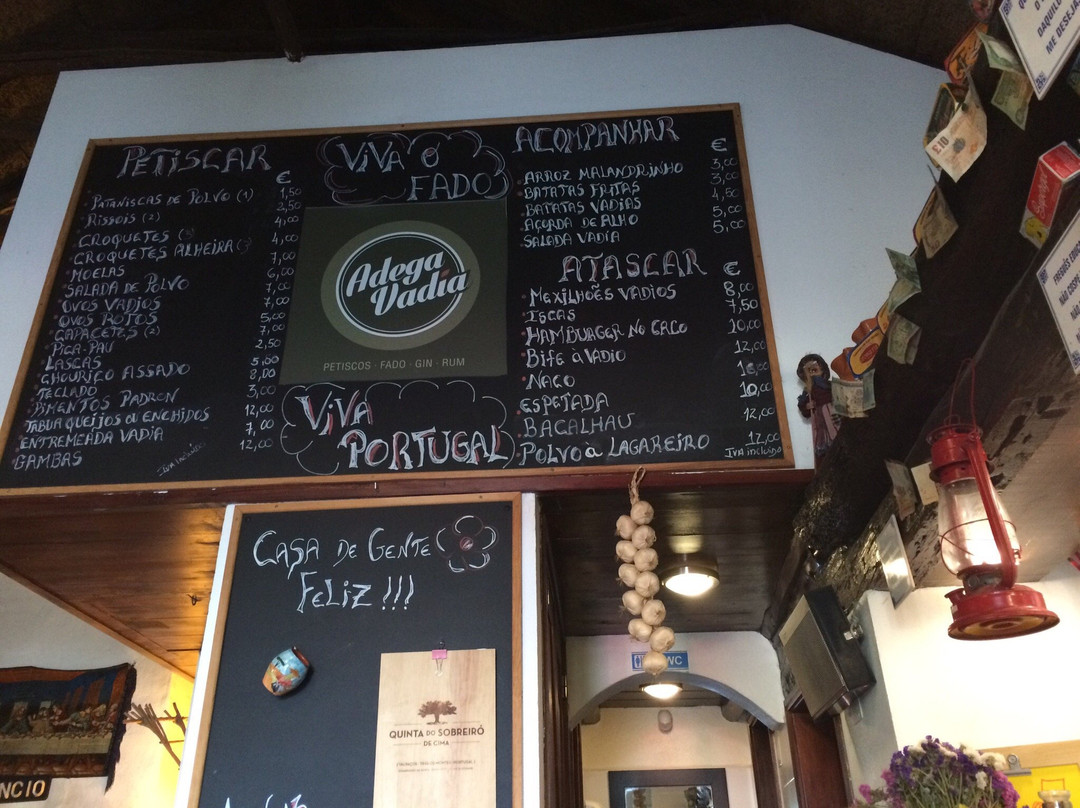 PETISCAR
€
PATANISCAS DE POLVO (1) 1,50
RISSOIS (2) 2,50
CROQUETES (3) 4,00
CROQUETES ALHEIRA (3) 4,00
MOELAS 7,00
SALADA DE POLVO 6,00
OVOS VADIOS 7,00
OVOS ROTOS 7,00
CAPACETES (2) 5,00
PICA-PAU 7,00
LASCAS 2,50
CHOURIÇO ASSADO 5,00
TECLADO 8,00
PIMENTOS PADRON 3,00
TABUA QUEIJOS OU ENCHIDOS 12,00
ENTREMEADA VADIA 7,00
GAMBAS 12,00
IVA incluido
VIVA O
FADO
Adega
Vadia
PETISCOS · FADO · GIN · RUM
VIVA
PORTUGAL
ACOMPANHAR
€
ARROZ MALANDRINHO 3,00
BATATAS FRITAS 3,00
BATATAS VADIAS 4,50
AÇORDA DE ALHO 5,00
SALADA VADIA 5,00
ATASCAR €
MEXILHÕES VADIOS 8,00
ISCAS 7,50
HAMBURGER NO CACO 10,00
BIFE à VADIO 12,00
NACO
ESPETADA 10,00
BACALHAU 12,00
POLVO à LAGAREIRO 12,00
IVA incluido
CASA DE GENTE
FELIZ!!!
QUINTA DO SOBREIRÓ
DE CIMA
WC
NCIO
£10
DAQUILO
ME DESEJA